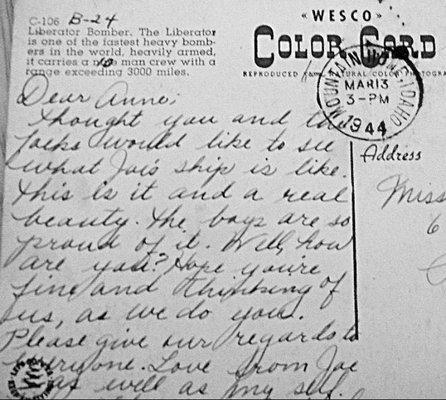 C-106 B-24
Liberator Bomber. The Liberator
is one of the fastest heavy bomb-
ers in the world, heavily armed,
it carries a 10 man crew with a
range exceeding 3000 miles.
«WESCO»
COLOR CARD
REPRODUCED NATURAL COLOR
MOUNTAIN HOME, IDAHO
MAR 13
3-PM
1944
Address
Miss
6
Dear Anne;
Thought you and the
folks would like to see
what Joe's ship is like.
This is it and a real
beauty. The boys are so
proud of it. Well, how
are you? Hope you're
fine and thinking of
us, as we do you.
Please give our regards to
everyone. Love from Joe
as well as my self.